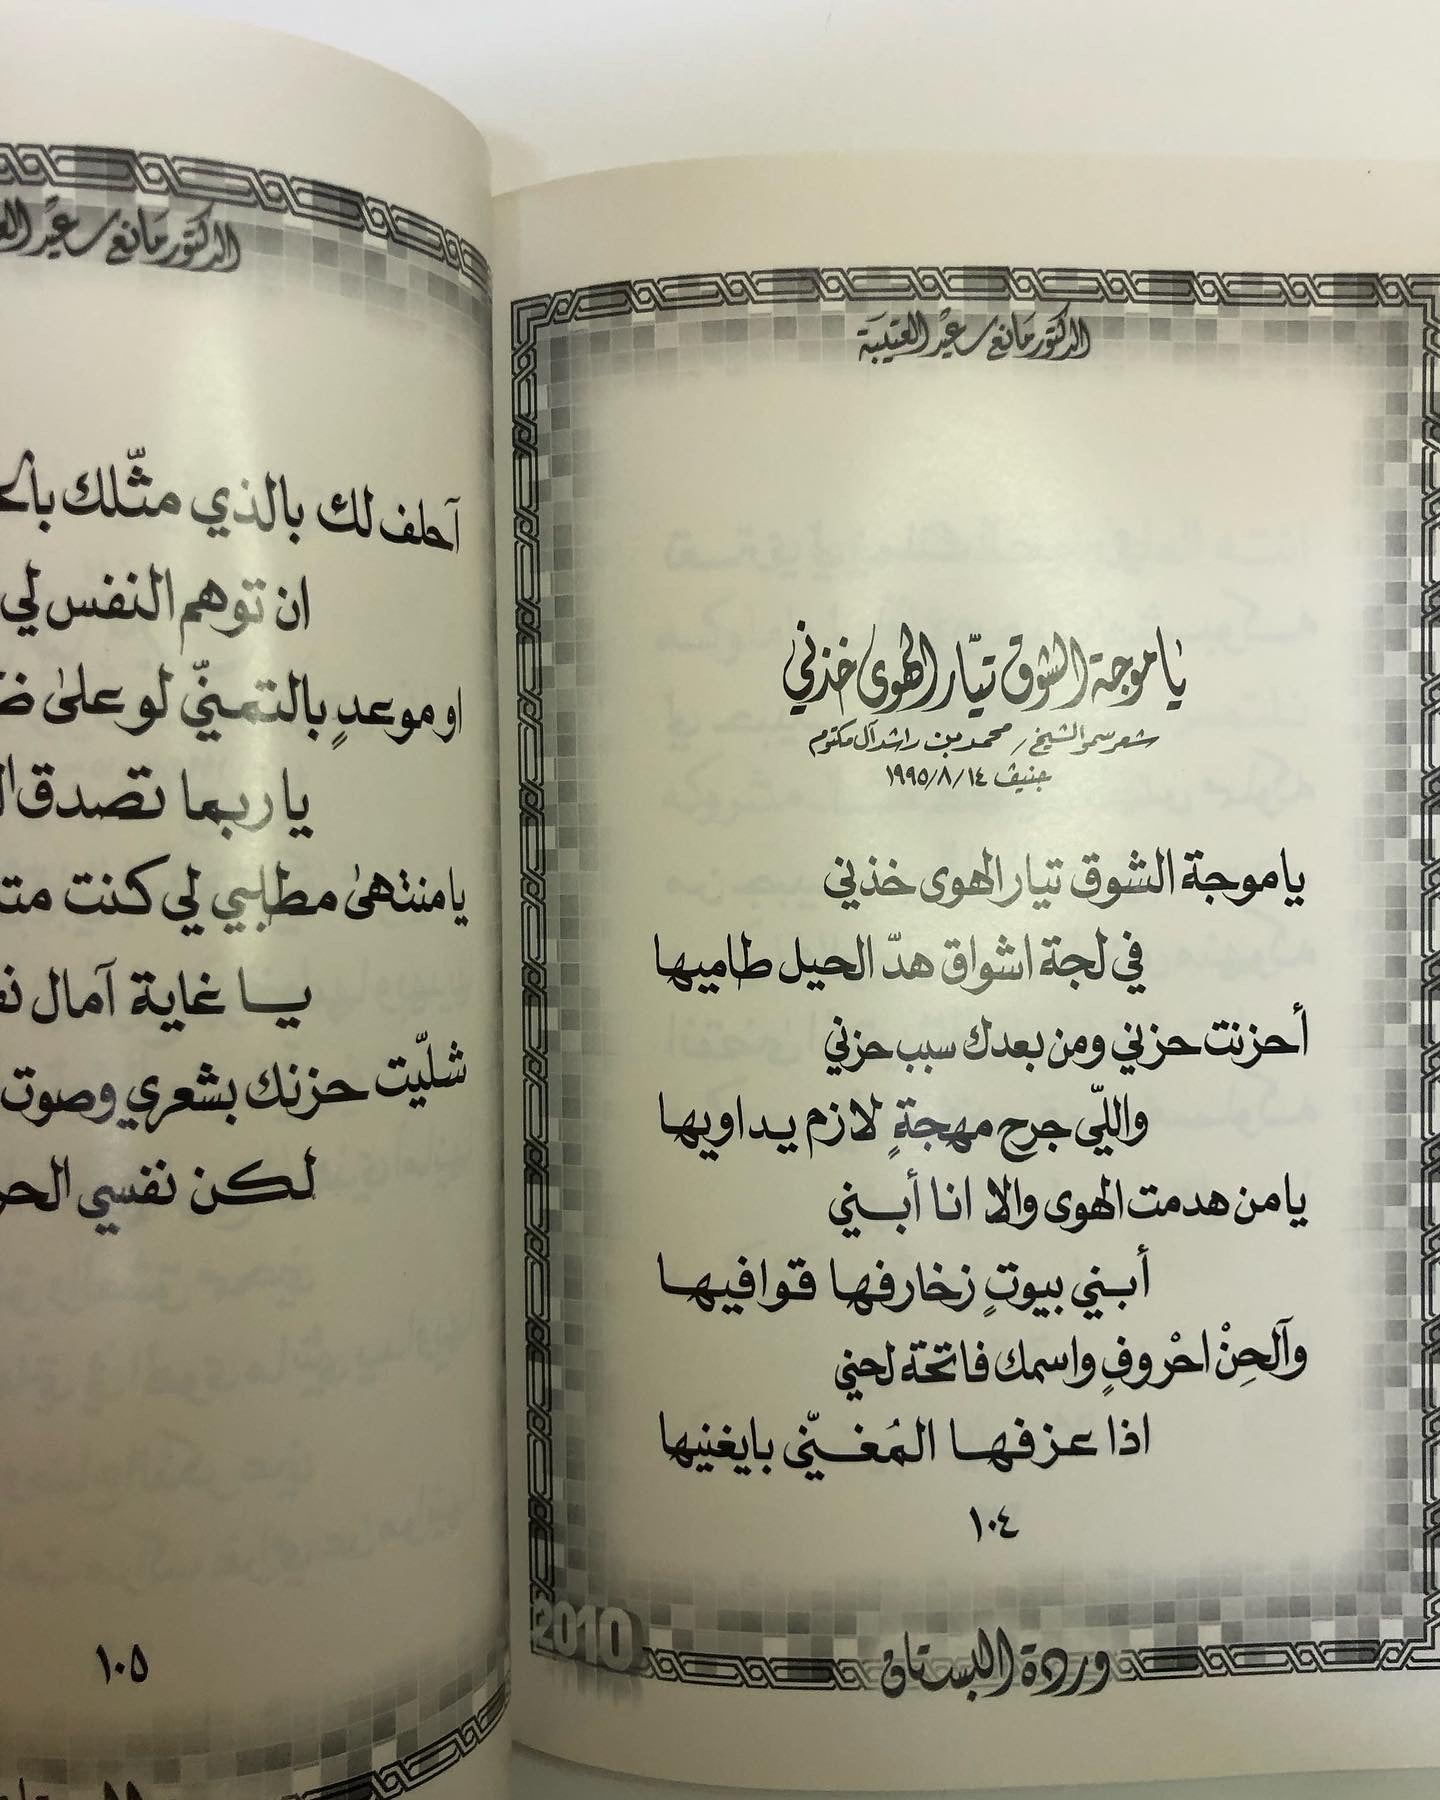 الدكتور مانع سعيد العتيبة
يا موجة الشوق تيّار الهوى خذني
شعر سمو الشيخ / محمد بن راشد آل مكتوم
جنيف ١٤/٨/١٩٩٥
يا موجة الشوق تيار الهوى خذني
في لجة اشواق هدّ الحيل طاميها
أحزنت حزني ومن بعدك سبب حزني
واللّي جرح مهجةٍ لازم يداويها
يا من هدمت الهوى والا انا أبـني
أبـني بيوتٍ زخارفها قوافيها
وآلحِنْ احْروفٍ واسمك فاتحة لحني
اذا عزفها المُغـنّي بايغنيها
١٠٤
2010
وردة البستان
الدكتور مانع سعيد
آحلف لك بالذي مثّلك
ان توهم النفس لي
او موعدٍ بالتمنّي لو على
يا ربما تصدق
يا منتهى مطلبي لي كنت
يا غاية آمال
شلّيت حزنك بشعري وصوت
لكن نفسي
١٠٥